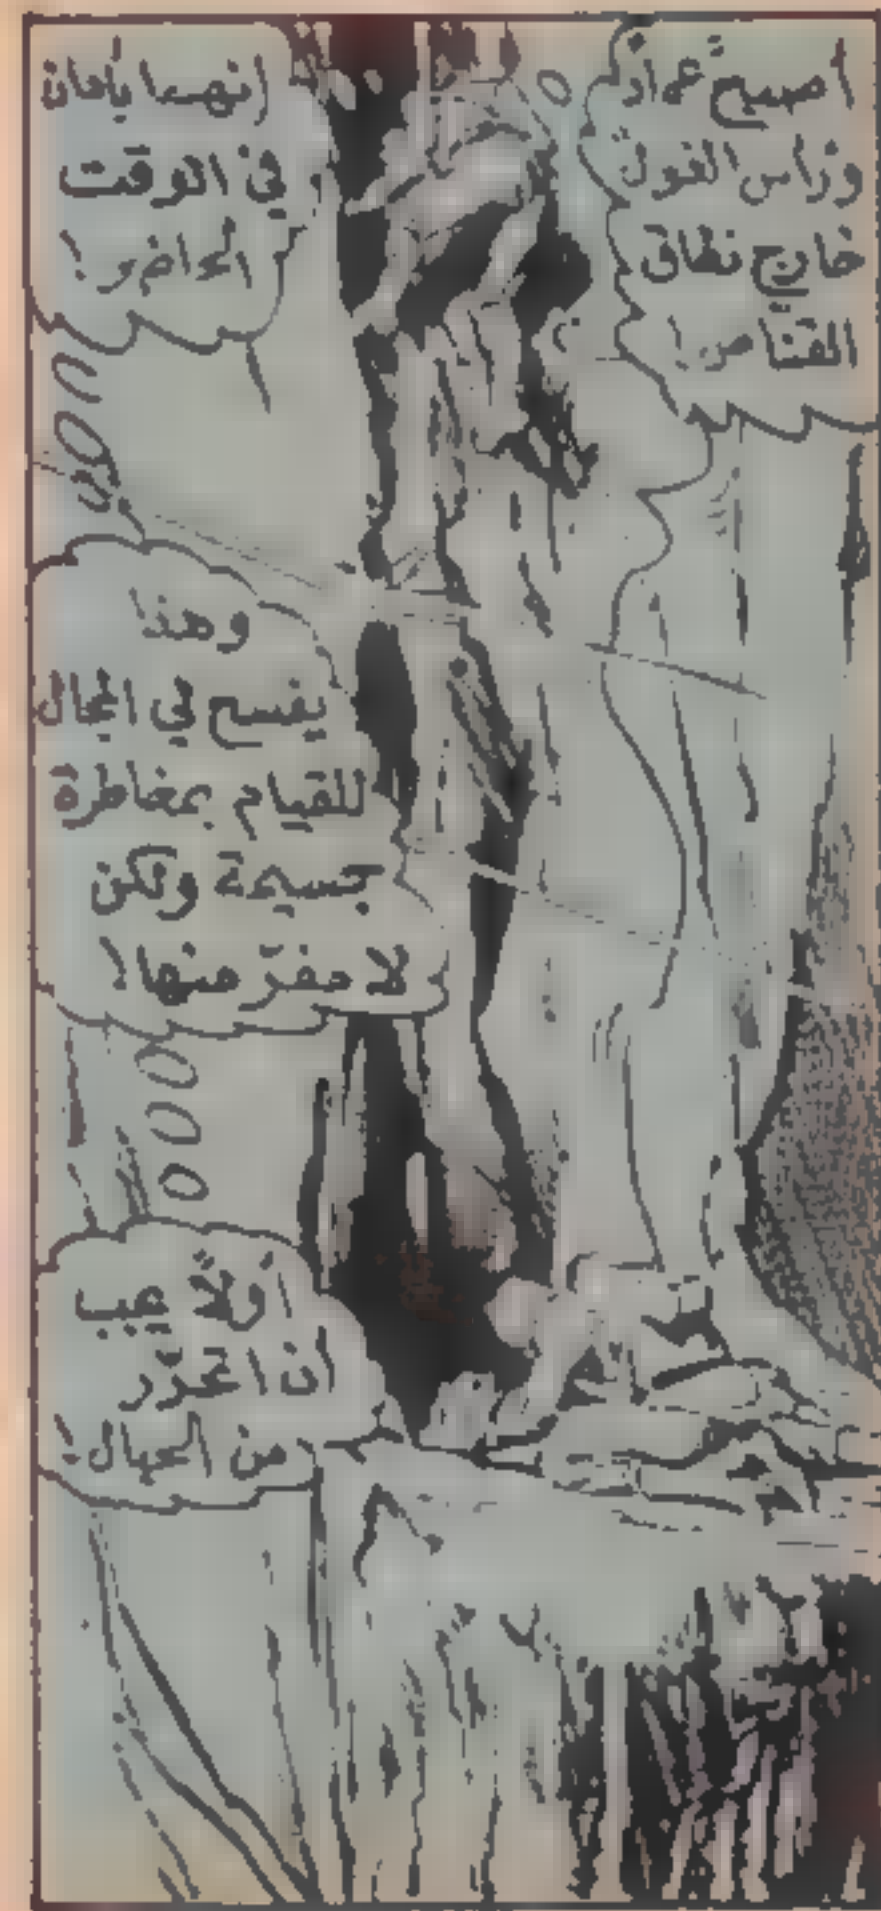 أصبح عماد
ورأس الفول
خارج نطاق
القنّاص!
إنهما بأمان
في الوقت
الحاضر!
وهذا
يفسح لي المجال
للقيام بمخاطرة
جسيمة ولكن
لا مفرّ منها!
أولاً يجب
ان اتحرّر
من الحبال!